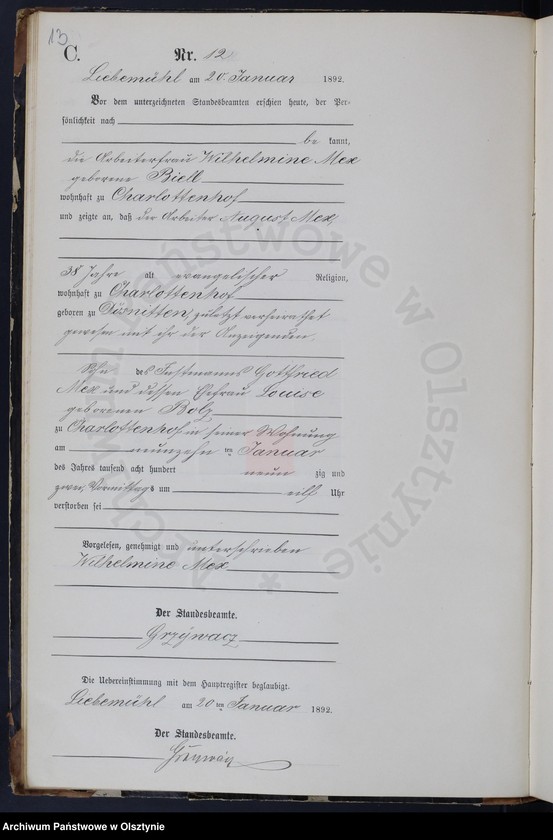 13
C.
Nr. 12
Liebemühl am 20. Januar 1892.
Vor dem unterzeichneten Standesbeamten erschien heute, der Per-
sönlichkeit nach
be kannt,
die Arbeiterfrau Wilhelmine Mex
geborene Biell
wohnhaft zu Charlottenhof
und zeigte an, daß der Arbeiter August Mex,
38 Jahre alt evangelischer Religion,
wohnhaft zu Charlottenhof
geboren zu zuletzt verheirathet
gewesen mit ihr der Anzeigenden.
Sohn des Instmanns Gottfried
Mex und dessen Ehefrau Louise
geborenen Bolz
zu Charlottenhof in seiner Wohnung
am neunzehn ten Januar
des Jahres tausend acht hundert neun zig und
zwei, Vormittags um eilf Uhr
verstorben sei
Vorgelesen, genehmigt und unterschrieben
Wilhelmine Mex
Der Standesbeamte.
Grzywacz
Die Uebereinstimmung mit dem Hauptregister beglaubigt.
Liebemühl am 20 ten Januar 1892.
Der Standesbeamte.
Grzywacz
Archiwum Państwowe w Olsztynie *
Archiwum Państwowe w Olsztynie